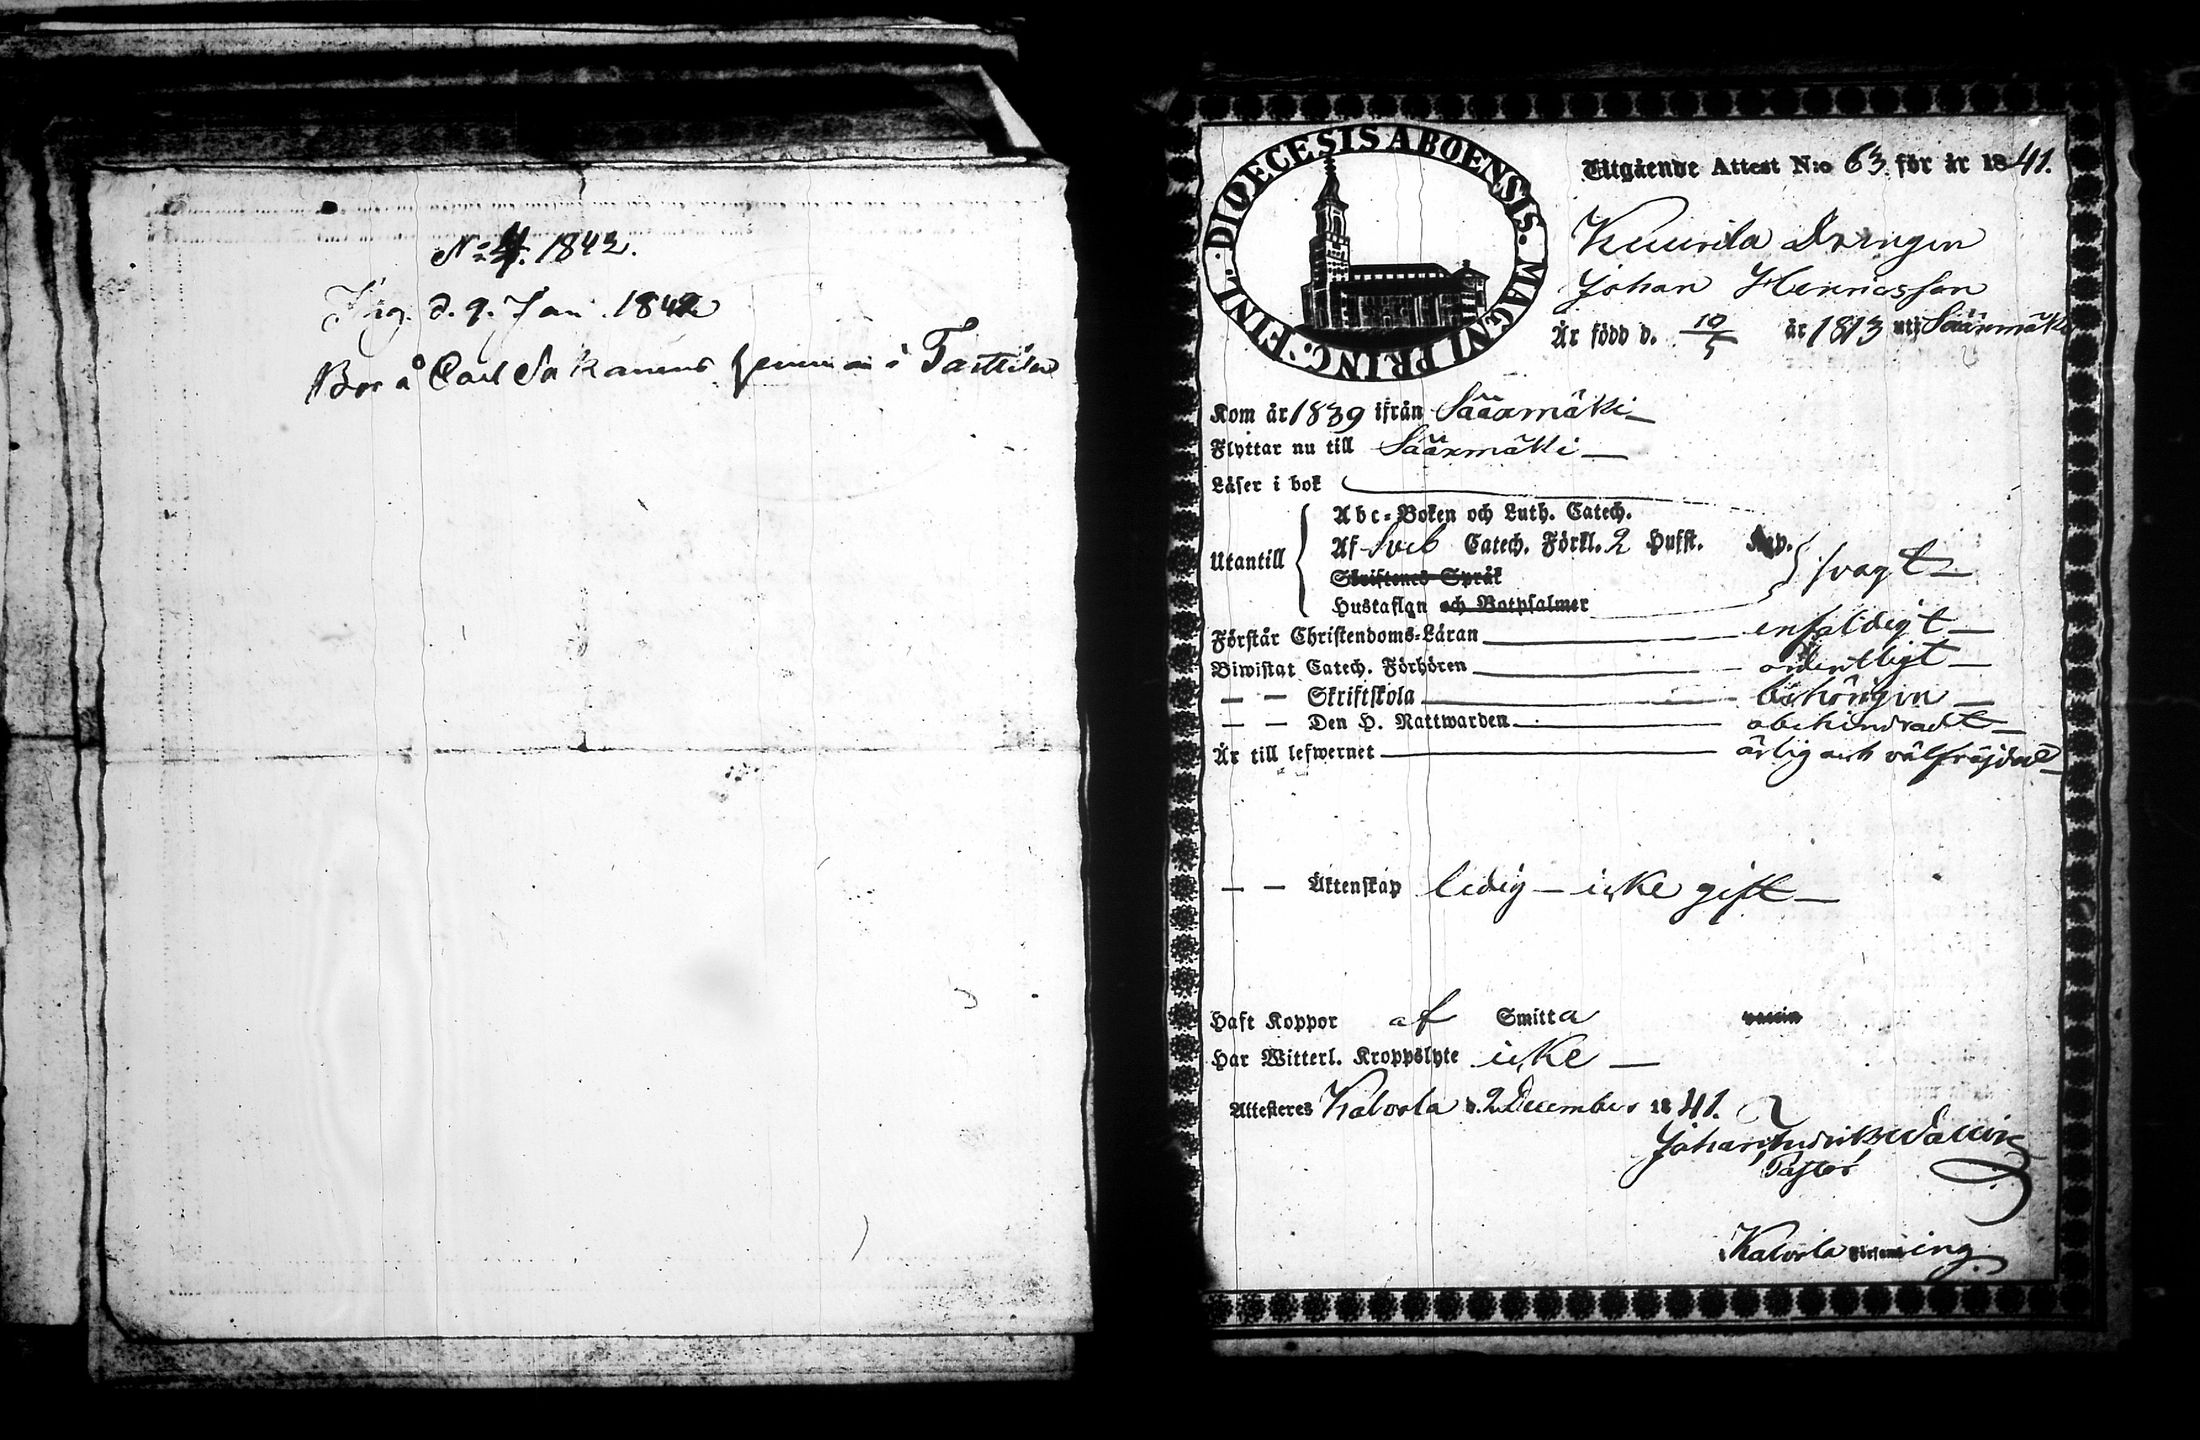 No 4. 1842.
Ing. d. 9. Jan. 1842
Bor å Carl Sakanens hemman i Tarttila
DIOECESIS ABOENSIS. MAGNI PRINC. FINL.
Utgående Attest N:o 63 för år 1841.
Kuurila Drengen
Johan Henricsson
Är född d. 10/5 år 1813 uti Säärmäki
Kom år 1839 ifrån Säärmäki
Flyttar nu till Säärmäki
Läser i bok
Abc-Boken och Luth. Catech.
Af Sveb Catech. Förkl. 2 Hufst. Kap.
Utantill svagt
Skriftenes Språk
Hustaflan och Botpsalmer
Förstår Christendoms-Läran enfaldigt
Biwistat Catech. Förhören ordentligt
— — Skriftskola behörigen
— — Den H. Nattwarden obehindradt
Är till lefwernet ärlig och välfräjdad
— — Äktenskap ledig – icke gift
Haft Koppor af Smitta vaccin
Har Witterl. Kroppslyte icke
Attesteras Kalvola d. 2 December 1841.
Johan Fredrik
Pastor
i Kalvola Församling.